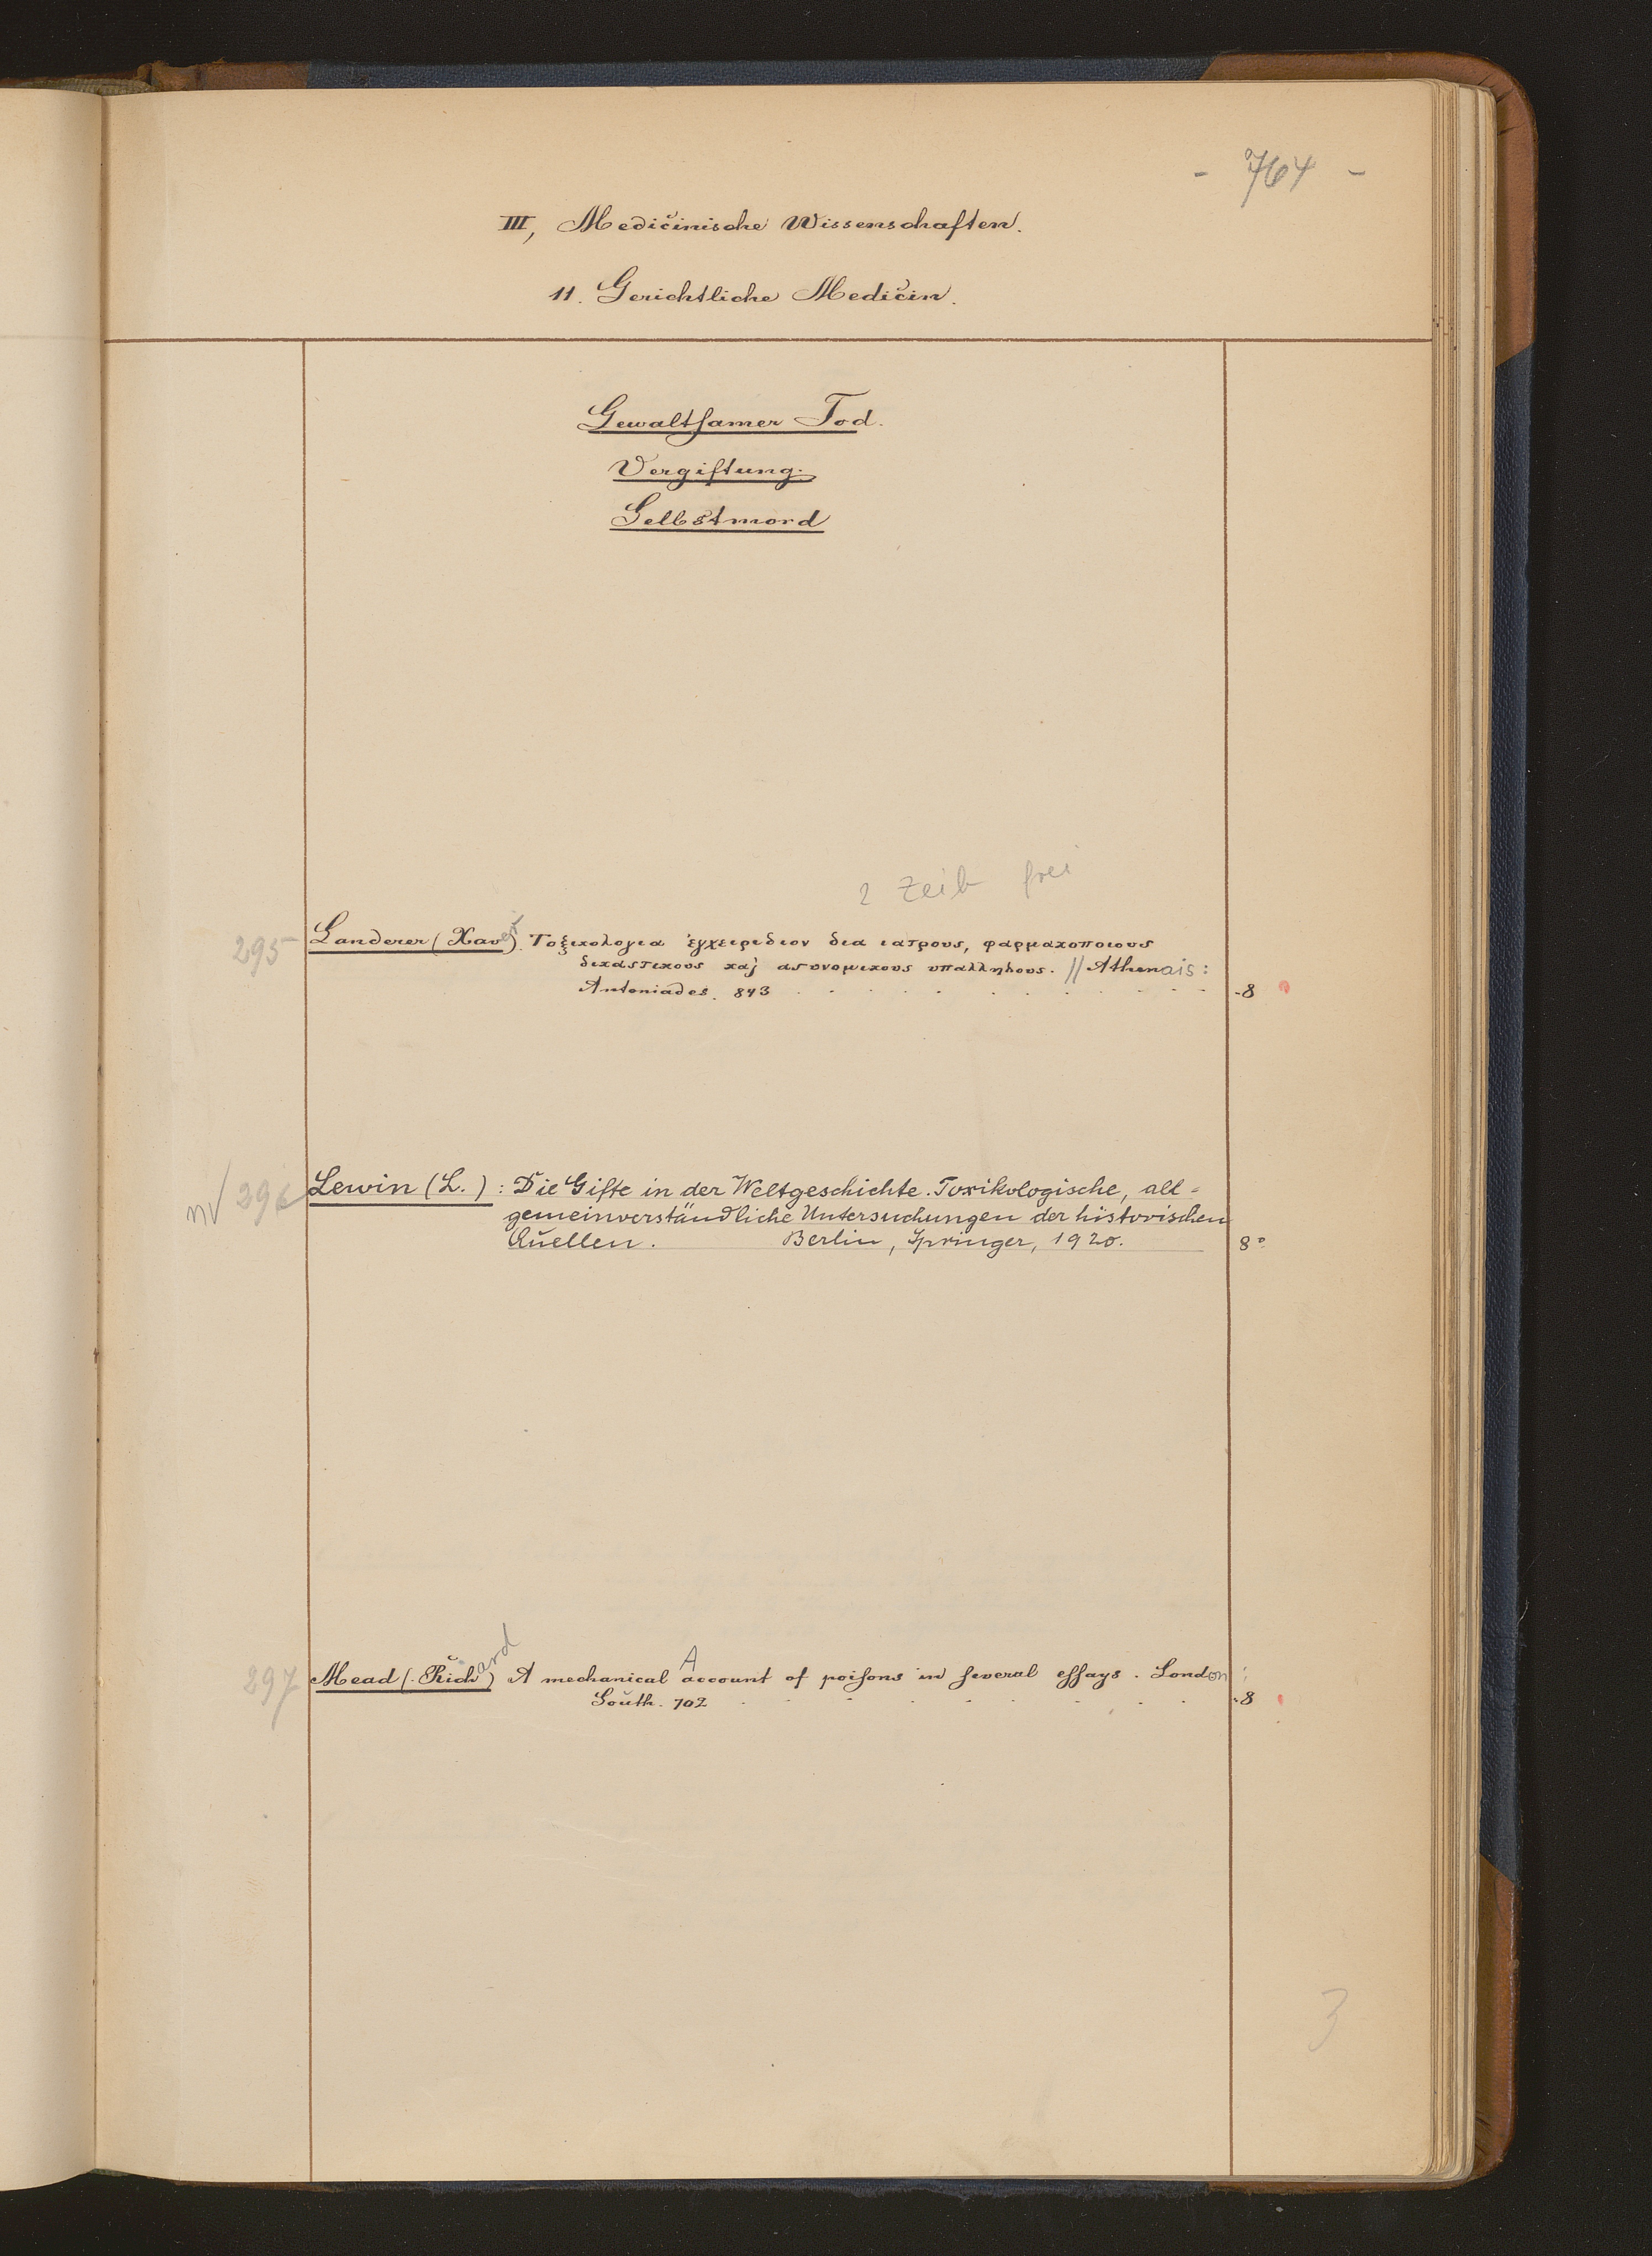 - 764 -
III, Medicinische Wissenschaften.
11. Gerichtliche Medicin.
Gewaltsamer Tod.
Vergiftung.
Selbstmord
2 Zeil frei
295 Landerer (Xaver). Τοξικολογια ἐγχειριδιον δια ιατρους, φαρμακοποιους
δικαστικους καὶ αστυνομικους υπαλληλους. // Athenais:
Antoniades. 843 -8
296 Lewin (L.): Die Gifte in der Weltgeschichte. Toxikologische, all-
gemeinverständliche Untersuchungen der historischen
Quellen. Berlin, Springer, 1920. 8°
297 Mead (Richard) A mechanical account of poisons in several essays. London:
South. 702 -8
3